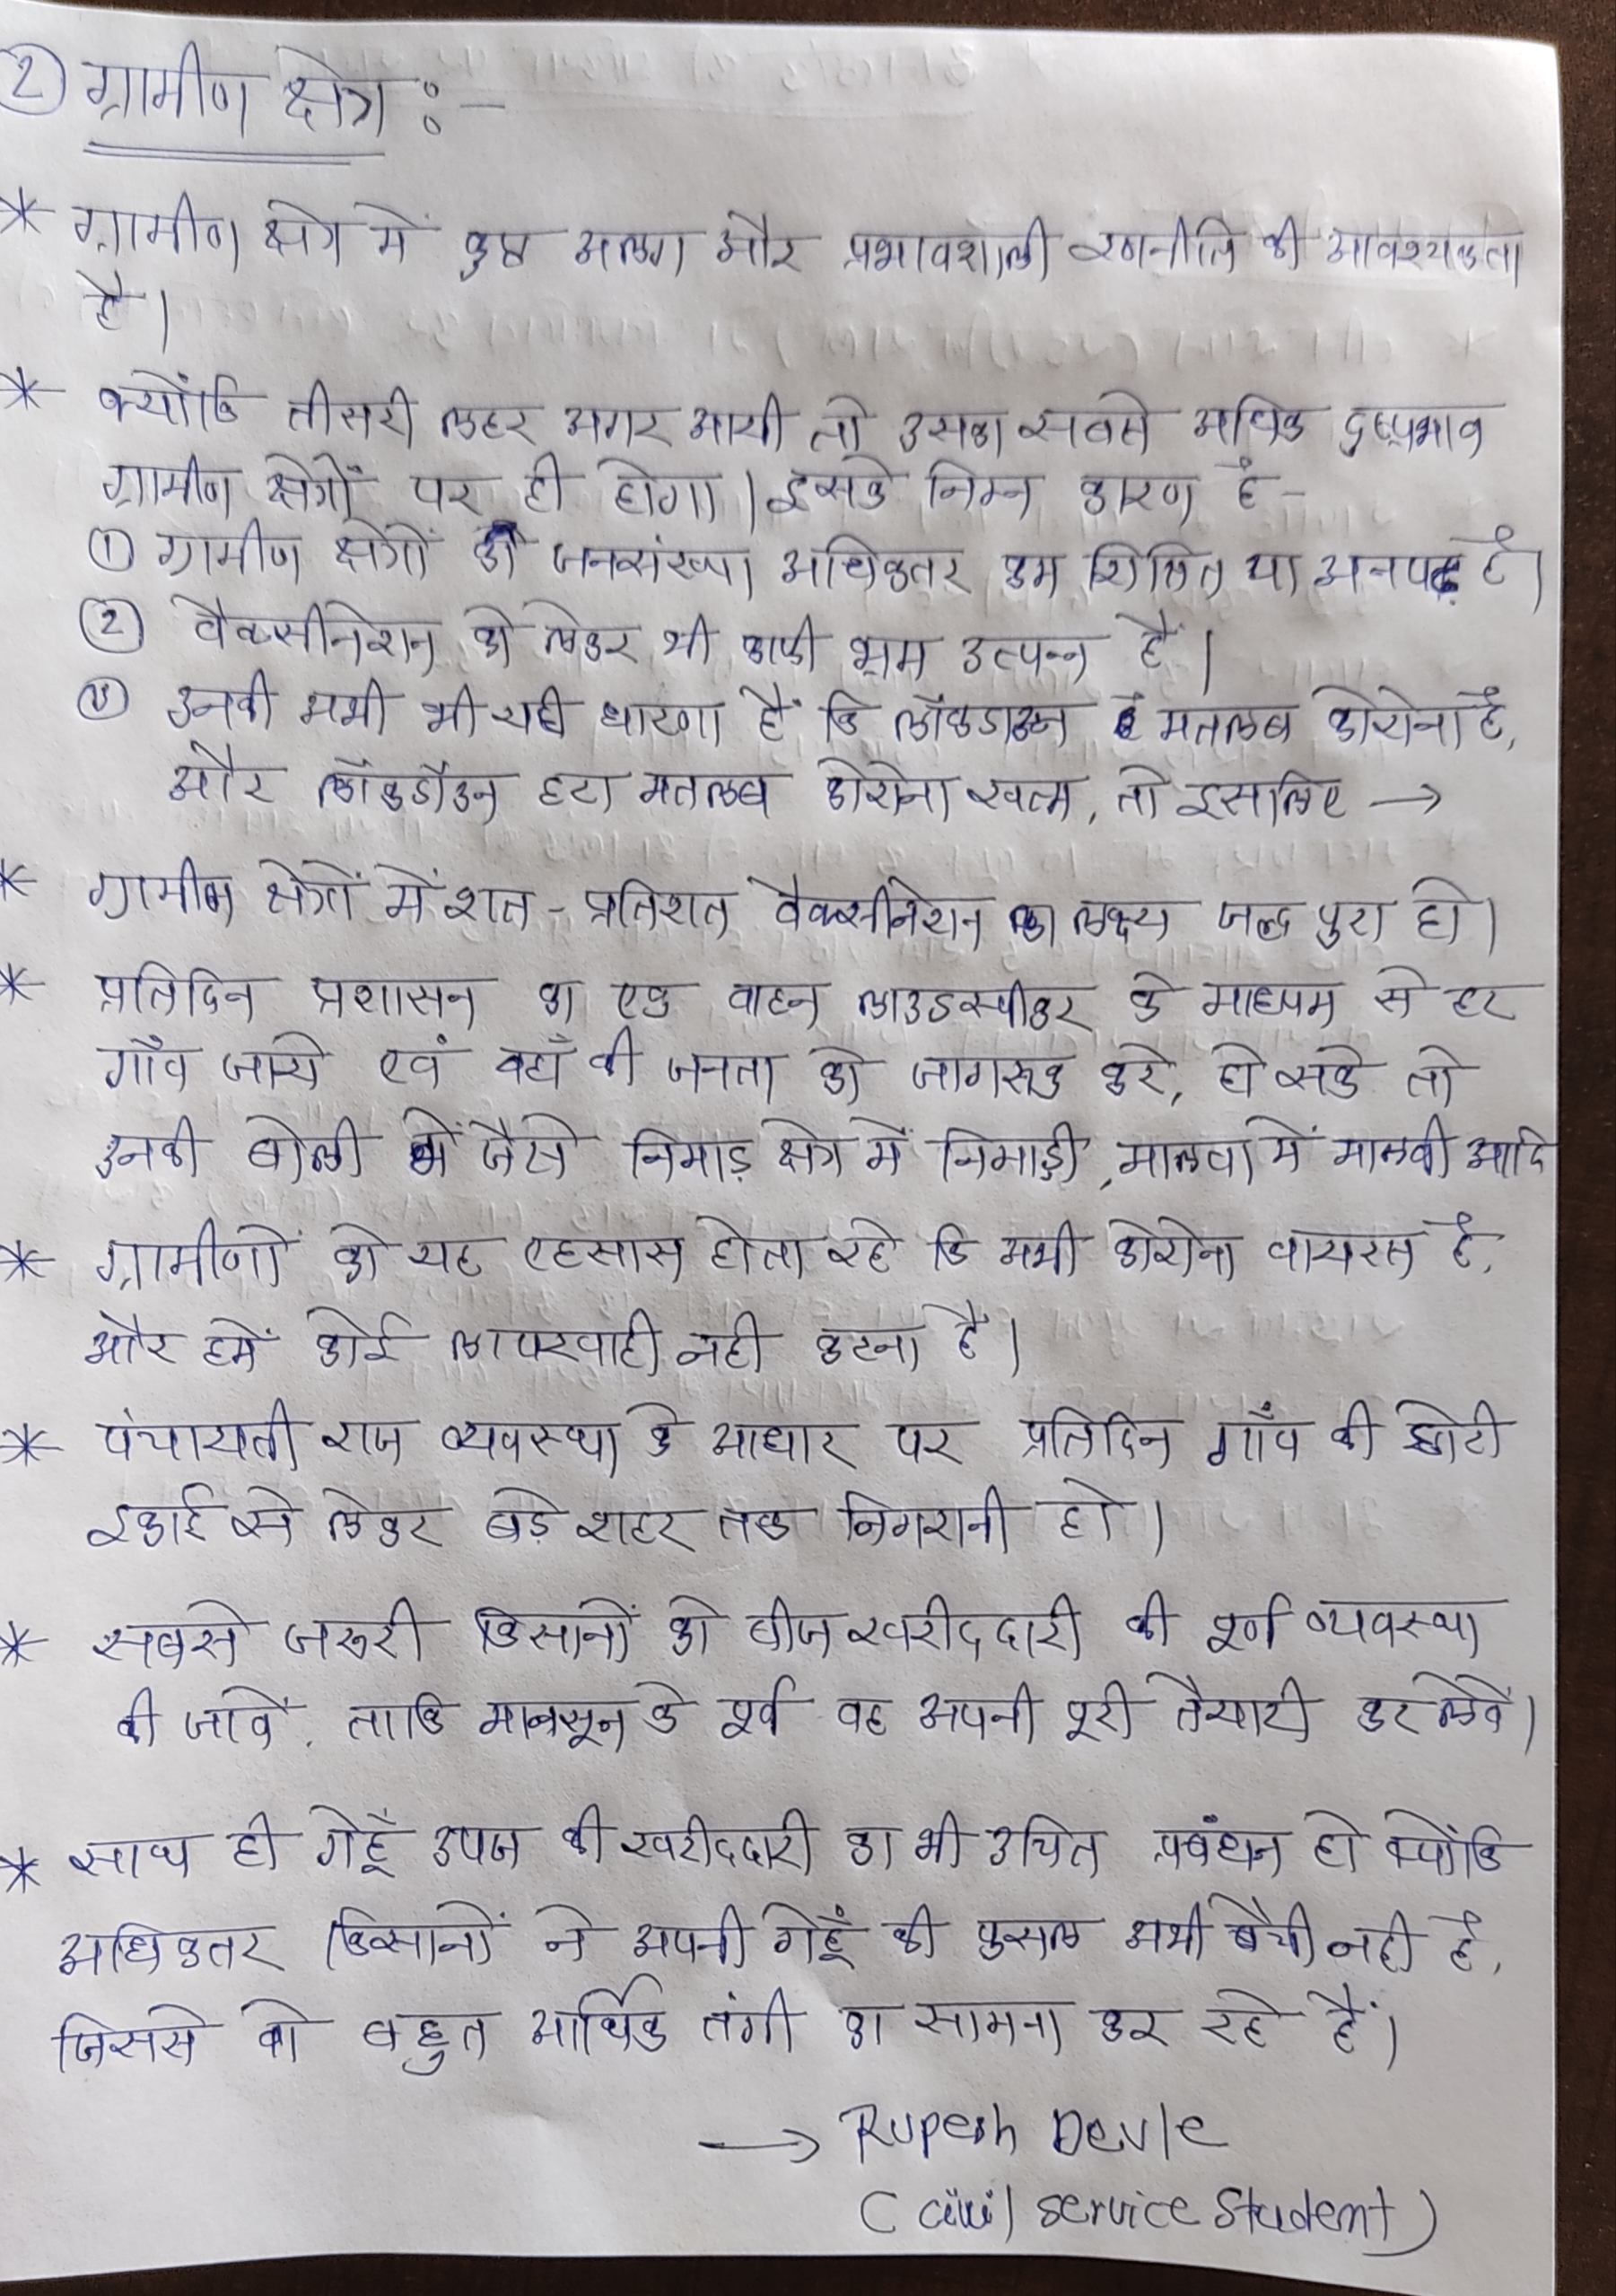 ② ग्रामीण क्षेत्र :-
* ग्रामीण क्षेत्र में कुछ अलग और प्रभावशाली रणनीति की आवश्यकता
है।
* क्योंकि तीसरी लहर अगर आयी तो उसका सबसे अधिक दुष्प्रभाव
ग्रामीण क्षेत्रों पर ही होगा। इसके निम्न कारण है -
① ग्रामीण क्षेत्रों की जनसंख्या अधिकतर कम शिक्षित या अनपढ़ है।
② वैक्सीनेशन को लेकर भी काफी भ्रम उत्पन्न है।
③ उनकी अभी भी यही धारणा है कि लॉकडाउन है मतलब कोरोना है,
और लॉकडौउन हटा मतलब कोरोना खत्म, तो इसलिए →
* ग्रामीण क्षेत्रों में शत - प्रतिशत वैक्सीनेशन का लक्ष्य जल्द पुरा हो।
* प्रतिदिन प्रशासन का एक वाहन लाउडस्पीकर के माध्यम से हर
गाँव जाये एवं वहाँ की जनता को जागरूक करे, हो सके तो
उनकी बोली में जैसे निमाड़ क्षेत्र में निमाड़ी, मालवा में मालवी आदि
* ग्रामीणों को यह एहसास होता रहे कि अभी कोरोना वायरस है,
और हमें कोई लापरवाही नही करना है।
* पंचायती राज व्यवस्था के आधार पर प्रतिदिन गाँव की छोटी
इकाई से लेकर बड़े शहर तक निगरानी हो।
* सबसे जरूरी किसानों को बीज खरीददारी की पूर्ण व्यवस्था
की जावें, ताकि मानसून के पूर्व वह अपनी पूरी तैयारी कर लेवें।
* साथ ही गेहूँ उपज की खरीददारी का भी उचित प्रबंधन हो क्योंकि
अधिकतर किसानों ने अपनी गेहूँ की फसल अभी बैची नही है,
जिससे वो बहुत आर्थिक तंगी का सामना कर रहे हैं।
→ Rupesh Devle
(civil service Student)